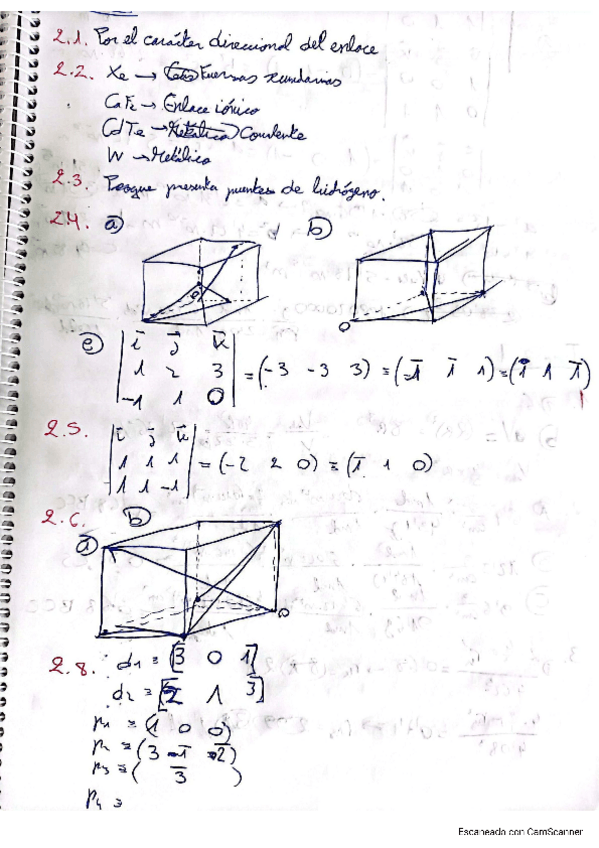 2.1. Por el carácter direccional del enlace
2.2. Xe → Fuerzas secundarias
CaF2 → Enlace iónico
CdTe → Metálico Covalente
W → Metálico
2.3. Porque presenta puentes de hidrógeno.
2.4. a) b)
O
c) | i j k |
| 1 2 3 | = (-3 -3 3) = (1̄ 1̄ 1) = (1 1 1̄)
| -1 1 0 |
2.5. | i j k |
| 1 1 1 | = (-2 2 0) = (1̄ 1 0)
| 1 1 -1 |
2.6. b)
a)
O
2.8. d1 = [3 0 1̄]
d2 = [2 1 3̄]
p1 = (1 0 0)
p2 = (3 -1 -2)
p3 = ( 3̄ )
p4 =
Escaneado con CamScanner